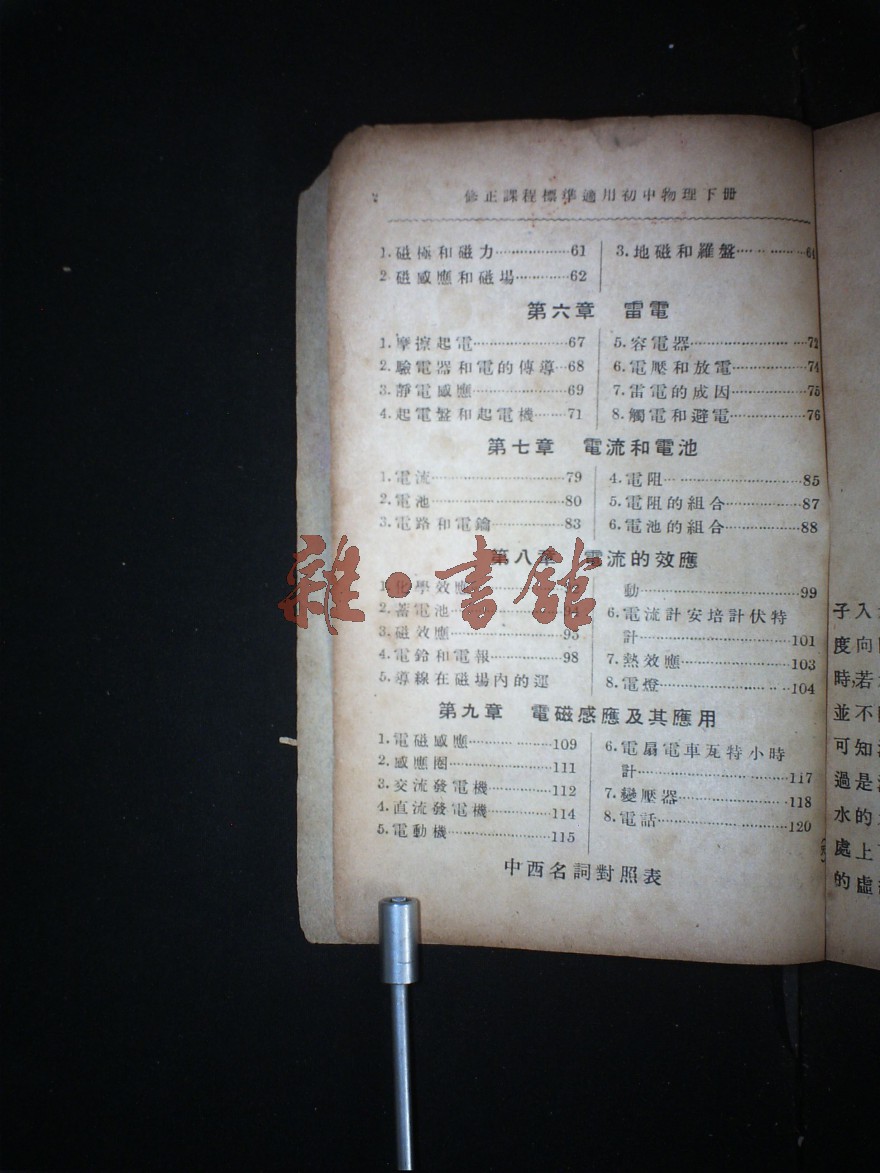 2 修正課程標準適用初中物理下册
1.磁極和磁力………………61
2.磁感應和磁場…………62
3.地磁和羅盤………………64
第六章 雷電
1.摩擦起電…………………67
2.驗電器和電的傳導…68
3.靜電感應…………………69
4.起電盤和起電機………71
5.容電器……………………72
6.電壓和放電………………74
7.雷電的成因………………75
8.觸電和避電………………76
第七章 電流和電池
1.電流…………………………79
2.電池…………………………80
3.電路和電鑰………………83
4.電阻…………………………85
5.電阻的組合………………87
6.電池的組合………………88
第八章 電流的效應
1.化學效應
2.蓄電池
3.磁效應……………………95
4.電鈴和電報………………98
5.導線在磁場內的運
動……………………………99
6.電流計安培計伏特
計……………………………101
7.熱效應……………………103
8.電燈…………………………104
第九章 電磁感應及其應用
1.電磁感應…………………109
2.感應圈……………………111
3.交流發電機………………112
4.直流發電機………………114
5.電動機……………………115
6.電扇電車瓦特小時
計……………………………117
7.變壓器……………………118
8.電話…………………………120
中西名詞對照表
雜·書館
子入
度向
時,若
並不
可知
過是
水的
處上
的虛